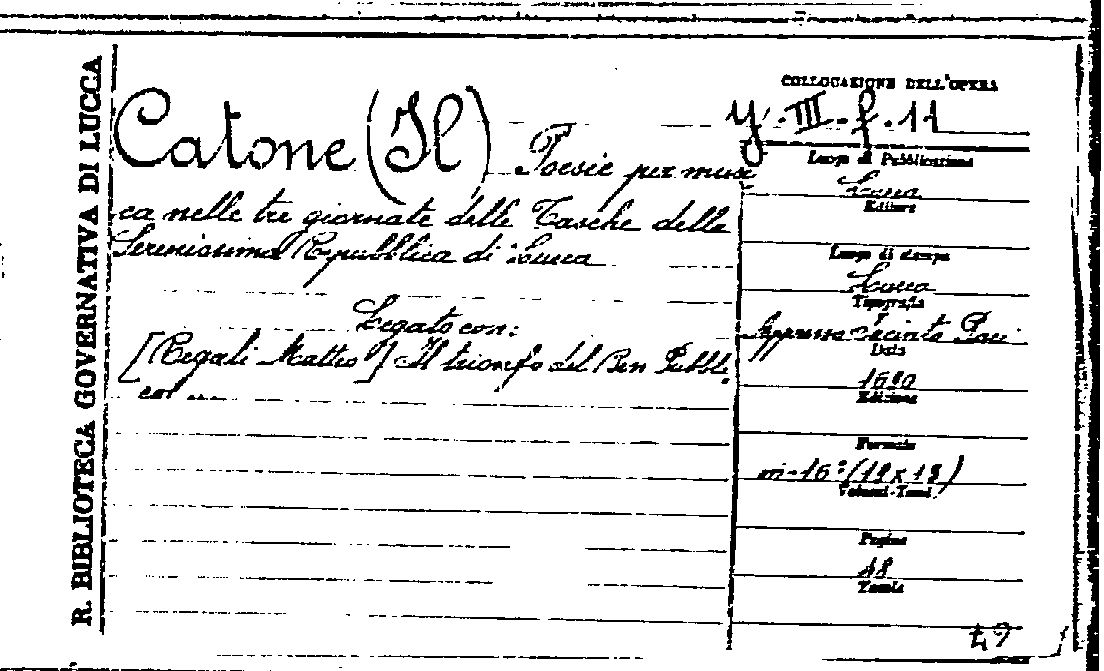 R. BIBLIOTECA GOVERNATIVA DI LUCCA
Catone (Il) Poesie per musi
ca nelle tre giornate delle Tasche della
Serenissima Repubblica di Lucca
Legato con:
[Regali Matteo] Il trionfo del Ben Pubbli
co ...
COLLOCAZIONE DELL'OPERA
y.III.f.11
Luogo di Pubblicazione
Lucca
Editore
Luogo di stampa
Lucca
Tipografia
Appresso Iacinto Paci
Data
Edizione
Formato
in-16º (19x13)
Volumi-Tomi
Pagine
48
Tavole